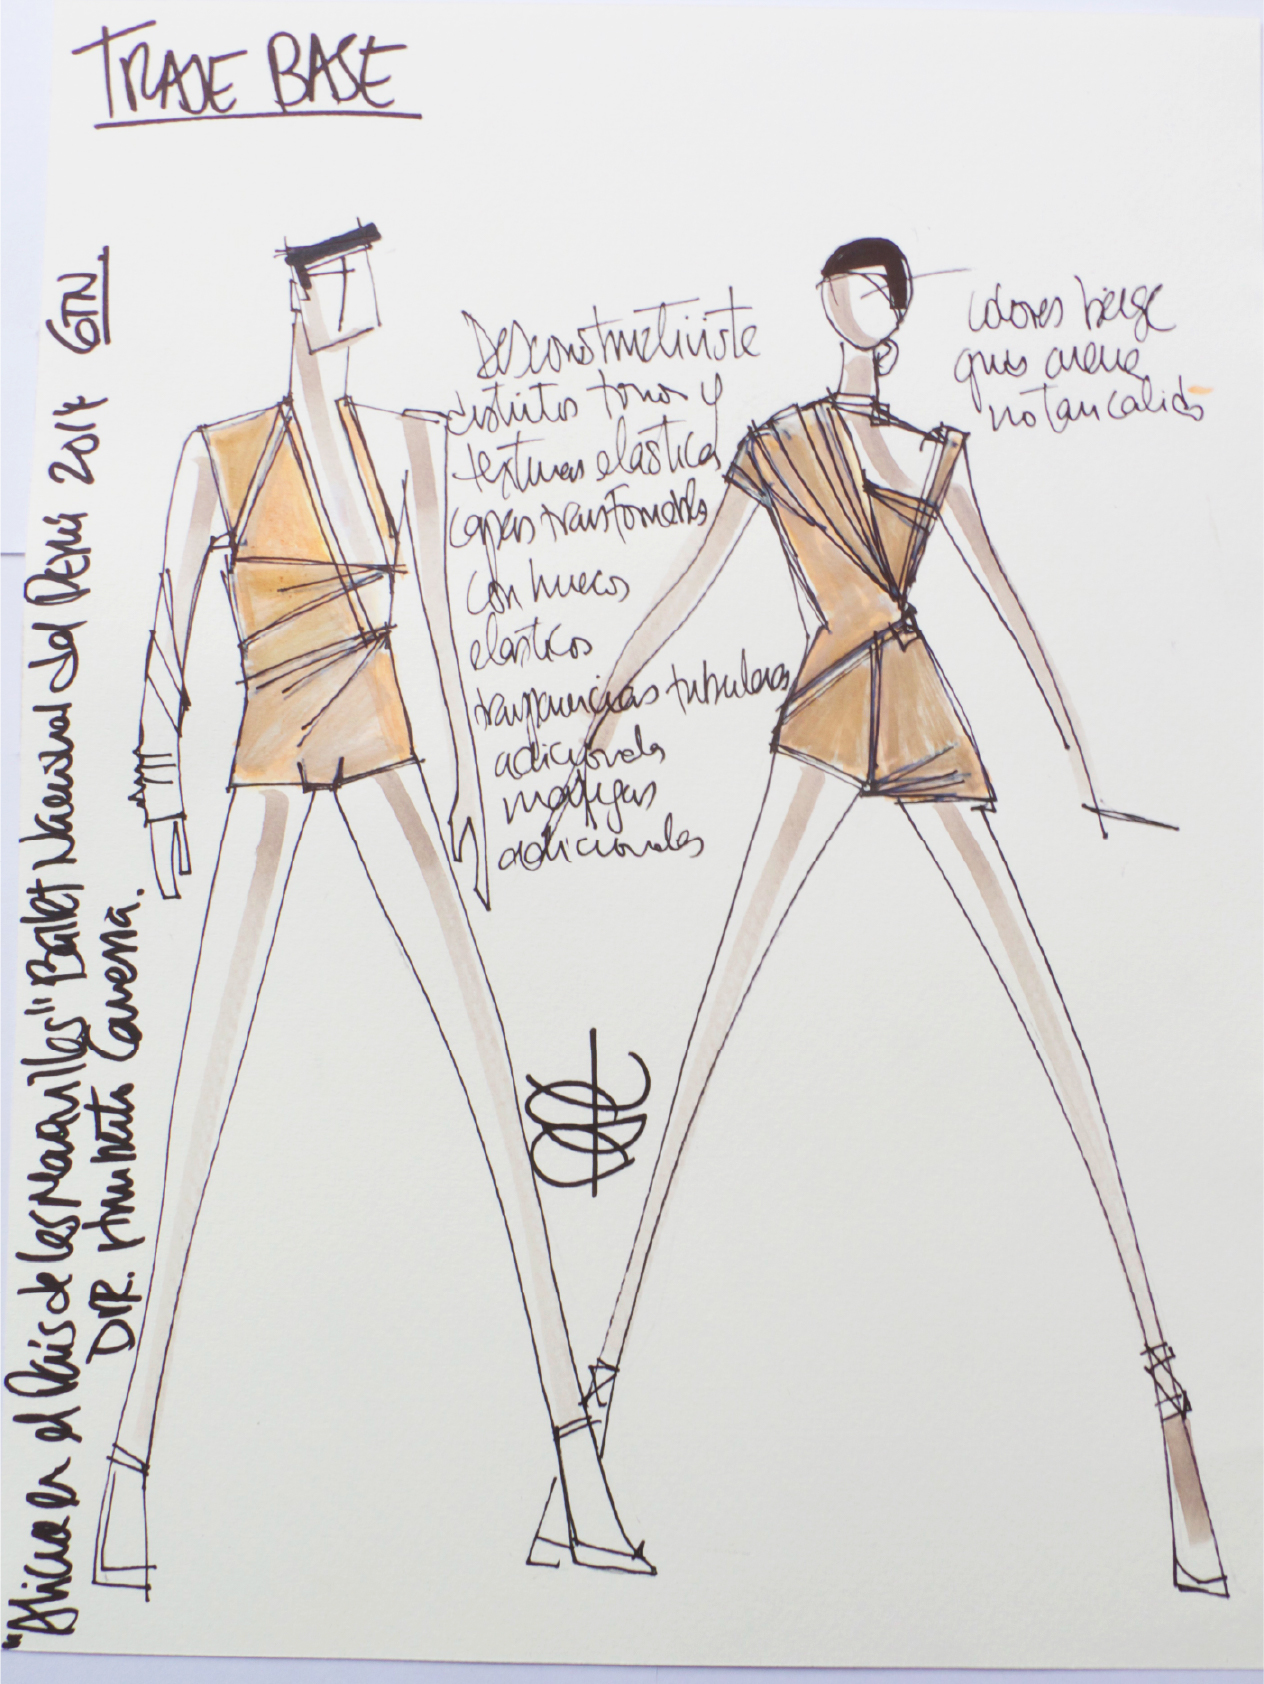 TRAJE BASE
Desconstructiviste
distintos tonos y
texturas elastica
capas transformables
con huecos
elasticos
transparencias tubulares
adicionales
mangas
adicionales
colores beige
gris arena
no tan calido
"Alicia en el País de las Maravillas" Ballet Nacional del Perú 2014 GTN
DIR.